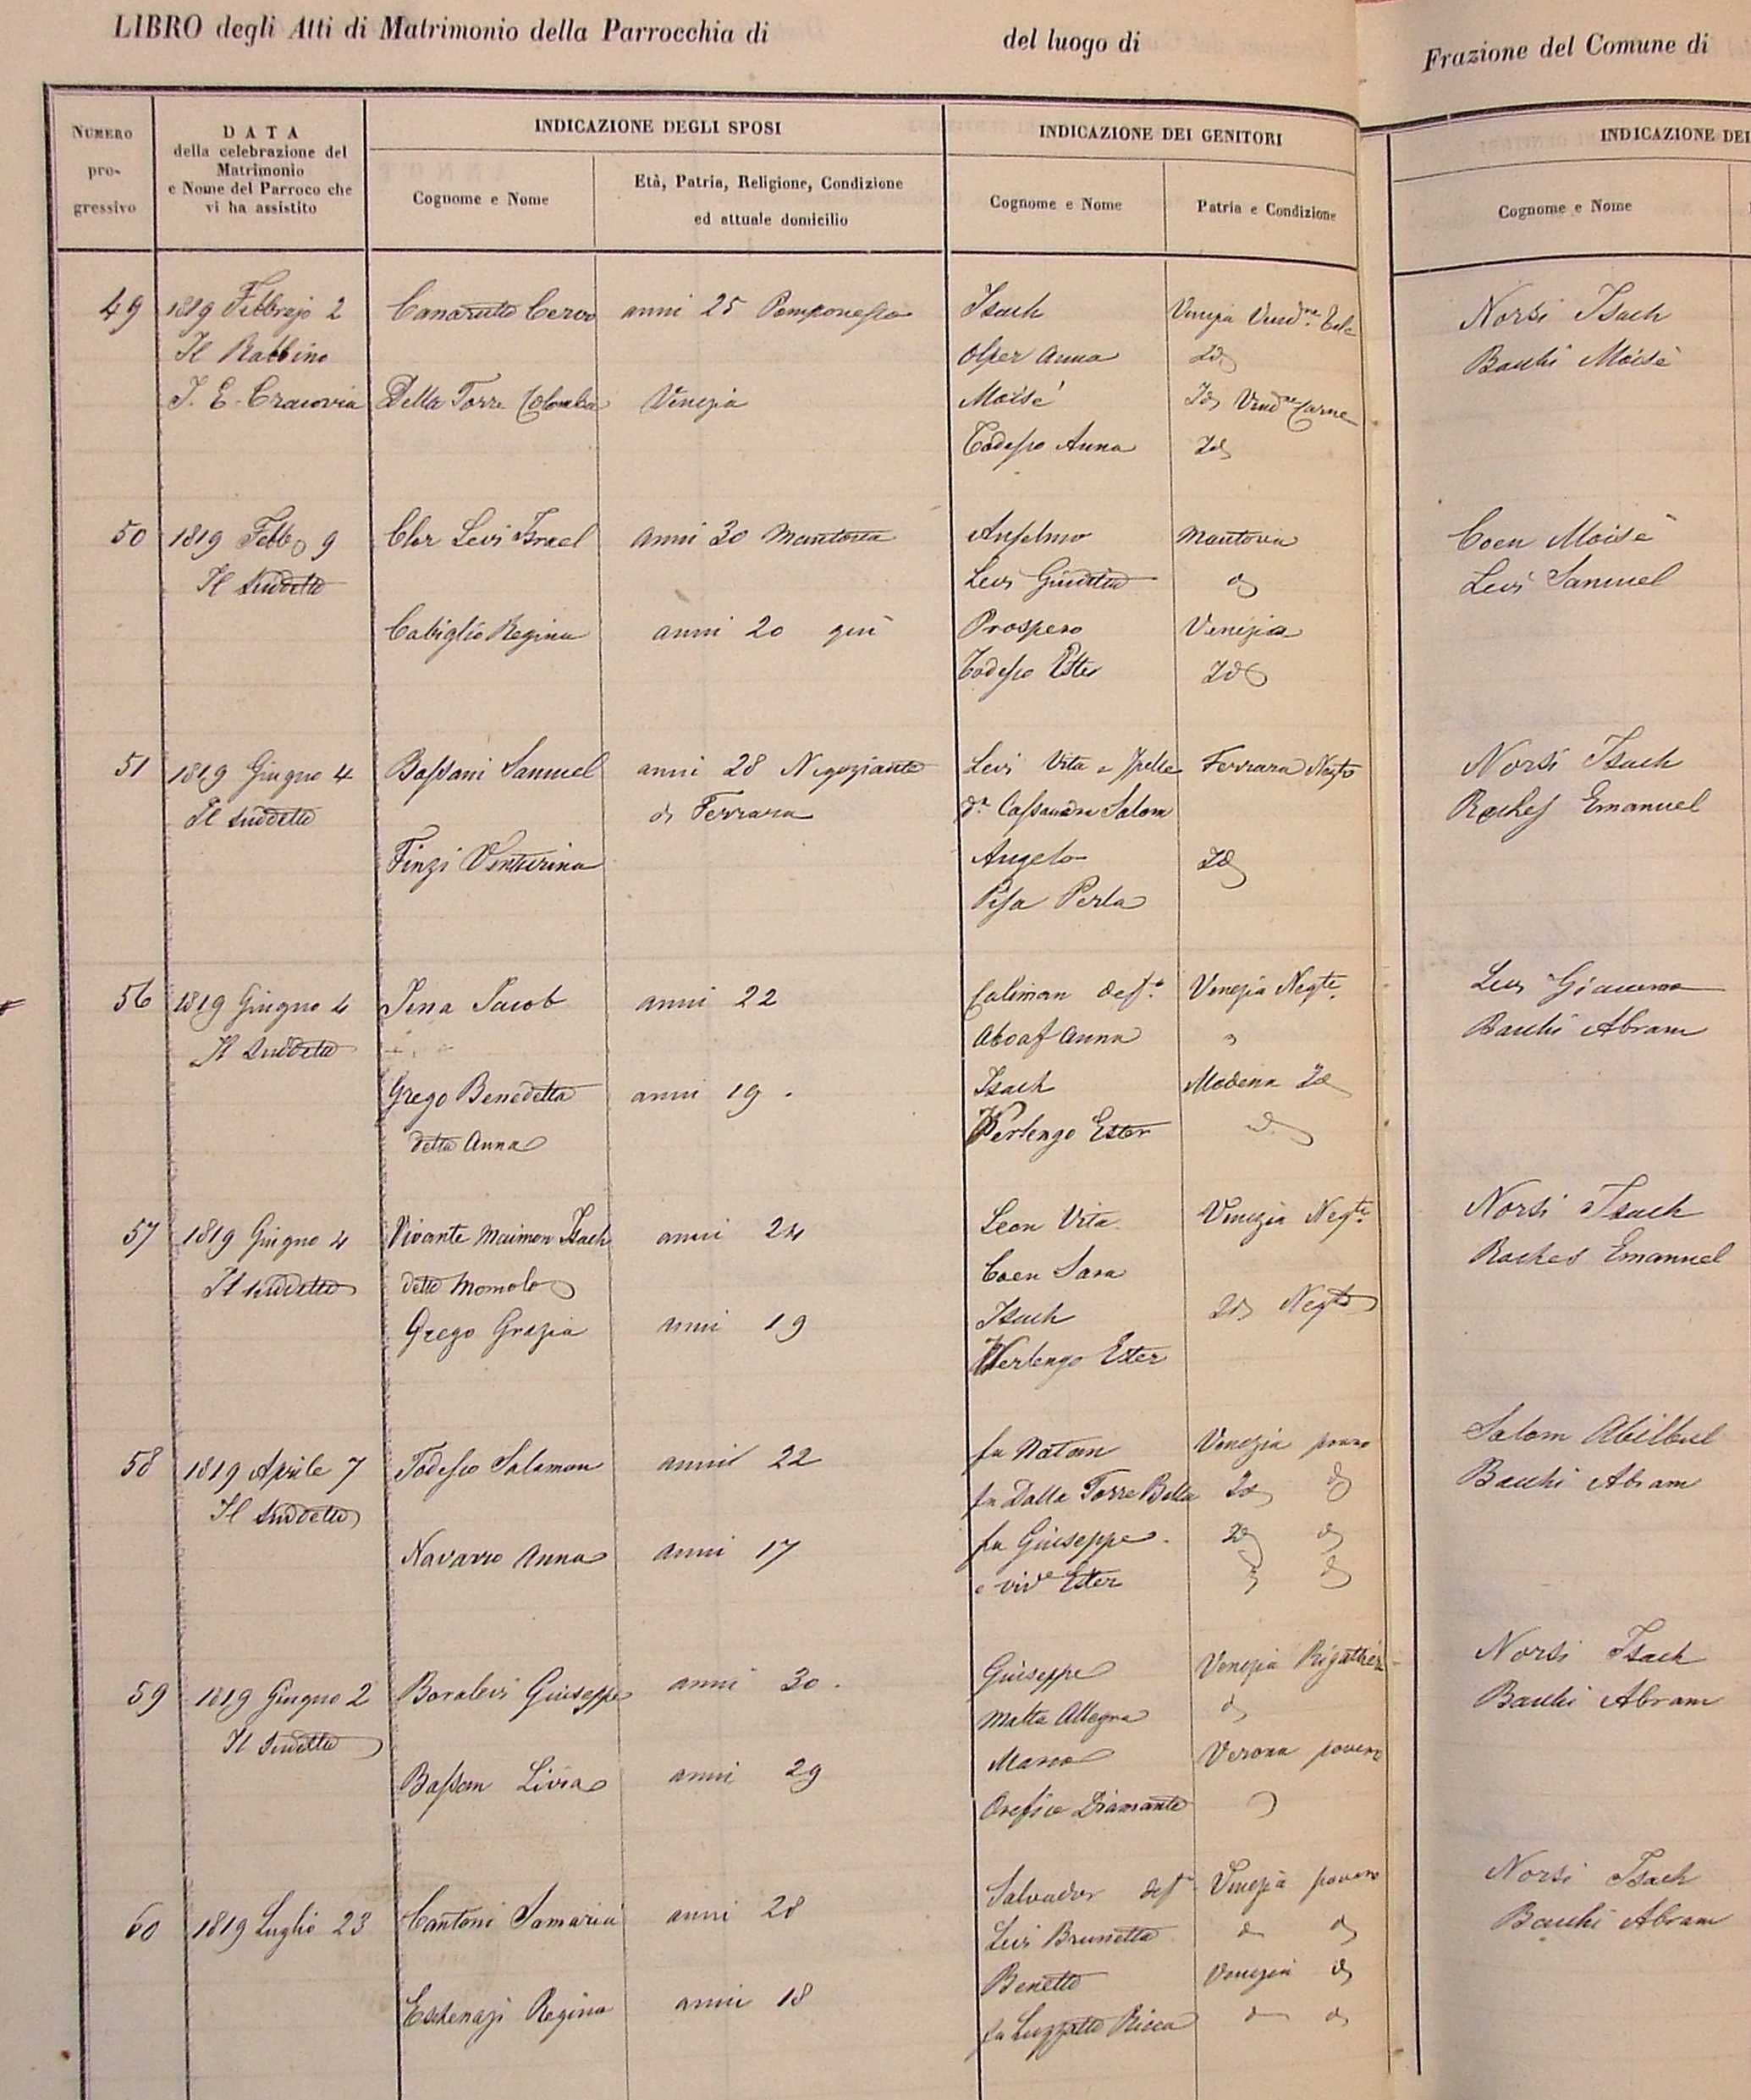 LIBRO degli Atti di Matrimonio della Parrocchia di del luogo di Frazione del Comune di
NUMERO progressivo
DATA della celebrazione del Matrimonio e Nome del Parroco che vi ha assistito
INDICAZIONE DEGLI SPOSI
Cognome e Nome
Età, Patria, Religione, Condizione ed attuale domicilio
INDICAZIONE DEI GENITORI
Cognome e Nome
Patria e Condizione
INDICAZIONE DEI
Cognome e Nome
49 1819 Febbrajo 2 Canarutto Cervo anni 25 Pomponesco Isach Venezia Norsi Isach
Il Rabbino Olper Anna Id Bauhi Moisè
I. E. Cracovia Della Torre Colomba Venezia Moisè Id Vend.ne Carne
Todesco Anna Id
50 1819 Febb 9 Cler Levi Israel anni 30 Mantova Anselmo Mantova Coen Moisè
Il Suddetto Levi Giuditta d Levi Samuel
Cabiglio Regina anni 20 qui Prospero Venezia
Todesco Ester Id
51 1819 Giugno 4 Bassani Samuel anni 28 Negoziante Levi Vita e Ferrara Negte Norsi Isach
Il Suddetto di Ferrara d.a Cassandra Salom Rackes Emanuel
Finzi Venturina Angelo Id
Pisa Perla
56 1819 Giugno 4 Pena Jacob anni 22 Caliman def.o Venezia Negte Levi Giacomo
Il Suddetto Aboaf Anna Bauhi Abram
Grego Benedetta anni 19 . Isach Modena Id
detta Anna Verlengo Ester d
57 1819 Giugno 4 Vivante Maimon Isach anni 24 Leon Vita Venezia Negte Norsi Isach
Il Suddetto detto Momolo Coen Sara Rackes Emanuel
Grego Grazia anni 19 Isach Id Negte
Verlengo Ester
58 1819 Aprile 7 Todesco Salamon anni 22 fu Natan Venezia povero Salom Abilbul
Il Suddetto fu Dalla Torre Bella Id d Bauhi Abram
Navarro Anna anni 17 fu Giuseppe Id d
e viv.e Ester d
59 1819 Giugno 2 Boralevi Giuseppe anni 30 . Giuseppe Venezia Norsi Isach
Il Suddetto Malta Allegra d Bauhi Abram
Bassan Livia anni 29 Marco Verona povero
Orefice Diamante
60 1819 Luglio 23 Cantoni Samaria anni 28 Salvador def.o Venezia povero Norsi Isach
Levi Brunetta d d Bauhi Abram
Benetto Venezia d
Eschenazi Regina anni 18 fu Luzzatto Ricca d d